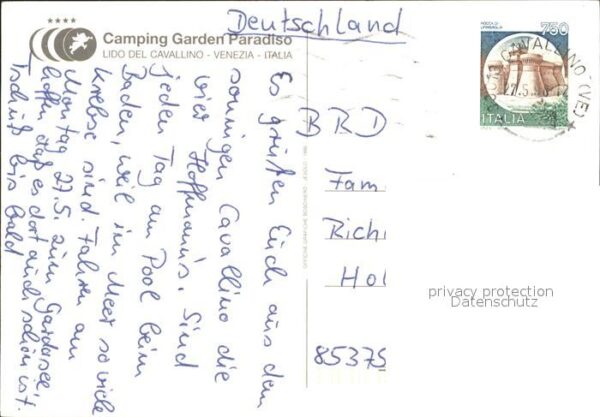 ★★★★
Camping Garden Paradiso
LIDO DEL CAVALLINO - VENEZIA - ITALIA
Es grüßen Euch aus dem
sonnigen Cavallino die
vier Hoffmann's. Sind
jeden Tag am Pool beim
Baden, weil im Meer so viele
Krebse sind. Fahren am
Montag 27.5. zum Gardasee,
hoffen daß es dort auch schön ist.
Tschüß bis bald
Deutschland
BRD
Fam
Rich
Hol
85375
750
ITALIA
CAVALLINO (VE)
privacy protection
Datenschutz